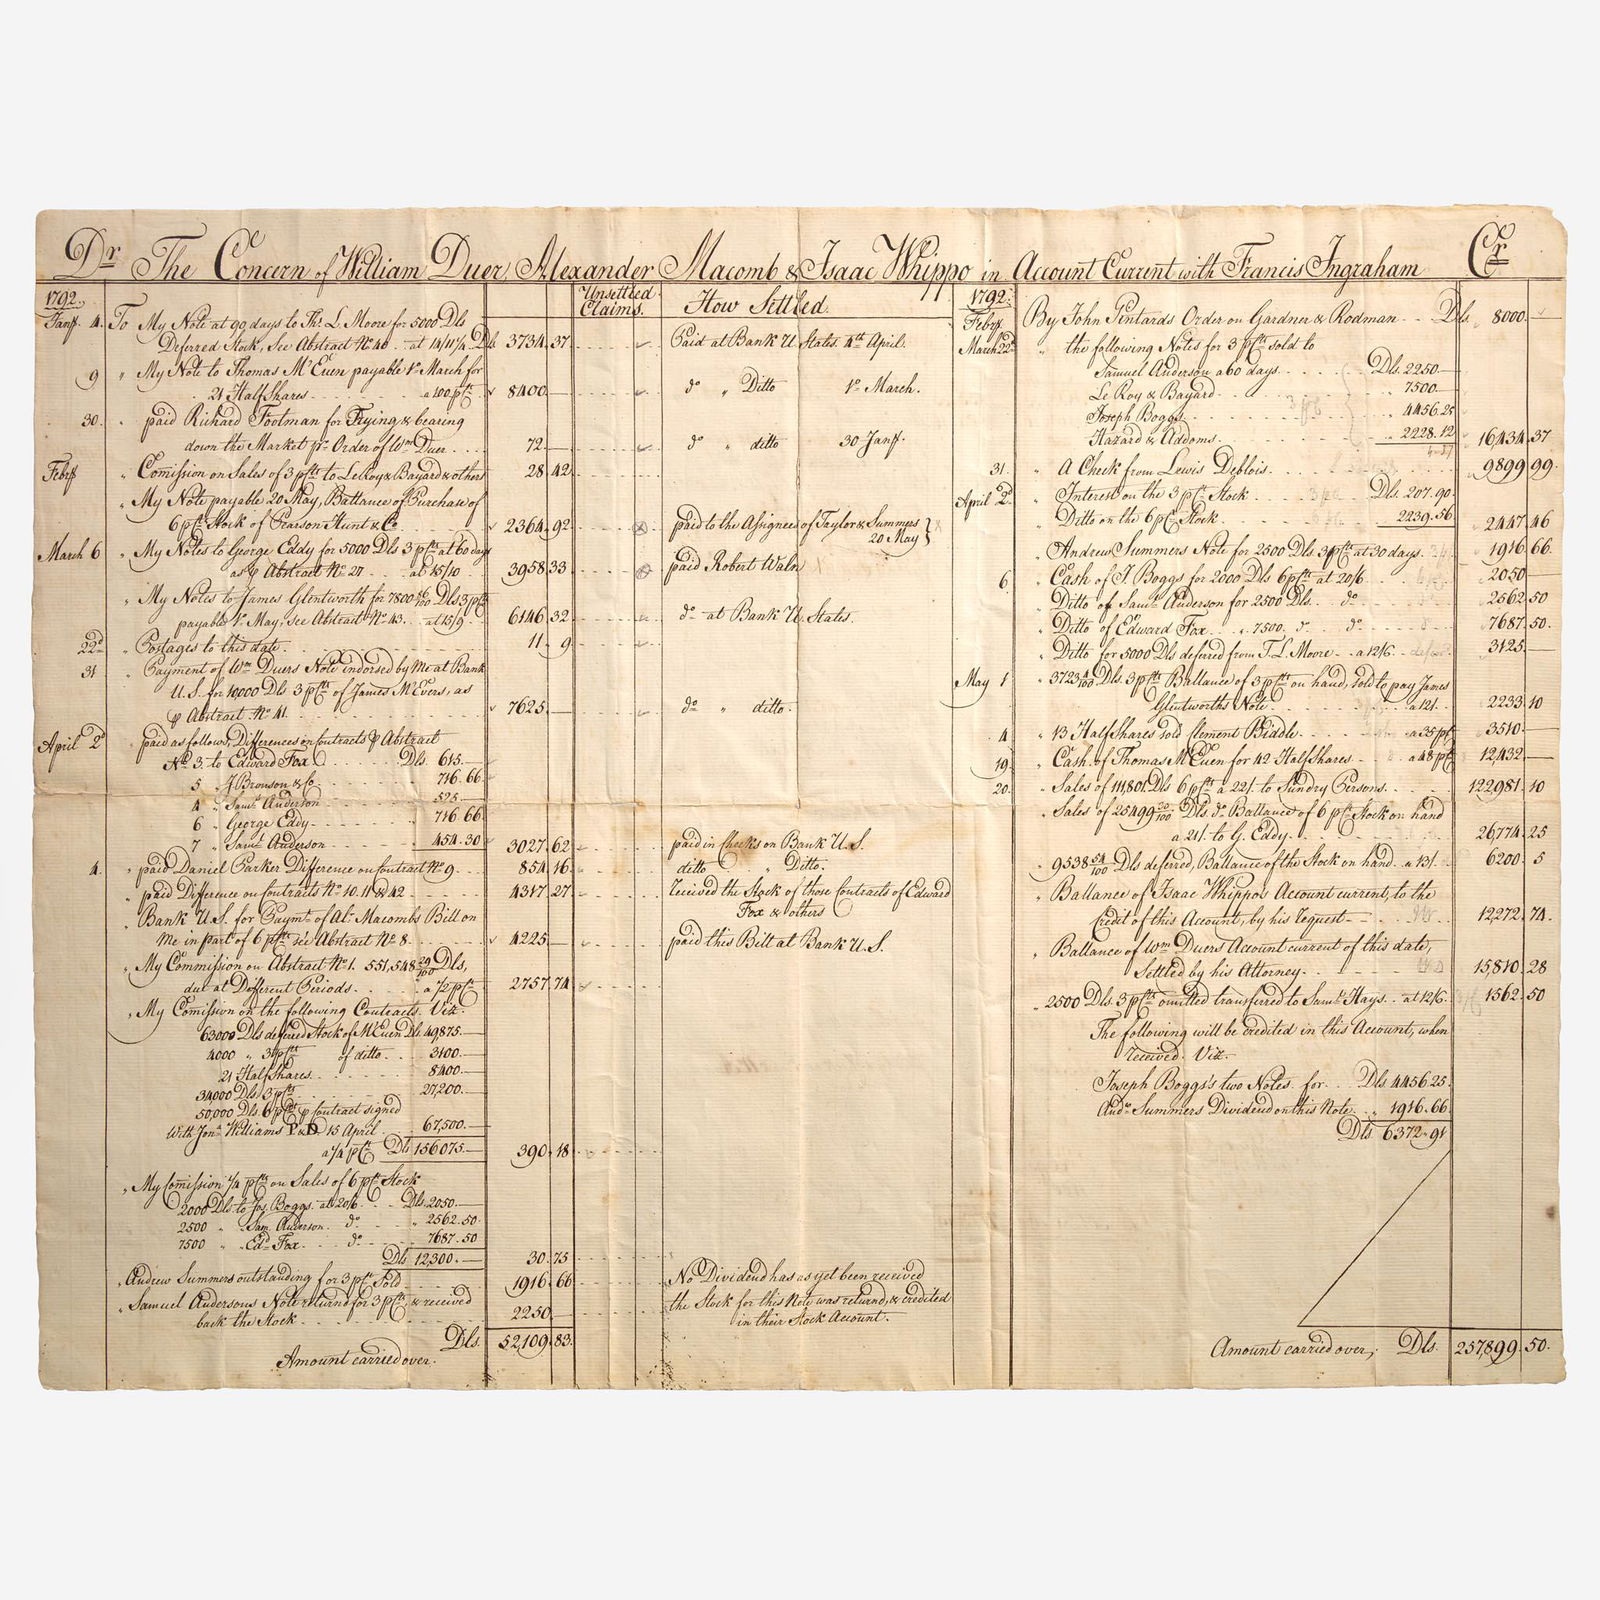 Dr. The Concern of William Duer, Alexander Macomb & Isaac Whippo in Account Current with Francis Ingraham Cr.
1792.
Unsettled Claims. How Settled.
Jany 4. To My Note at 90 days to Th. L. Moore for 5000 Dls
Deferred Stock, See Abstract No. 40 at 14/11 1/4 Dls 3734.37 Paid at Bank U. States 4th April.
9 " My Note to Thomas McEuen payable 1st March for
21 Half Shares a 400 pCt 8400 do " Ditto 1st March.
30. " paid Richard Footman for Crying & bearing
down the Market pr. Order of Wm Duer 72. do " ditto 30 Jany.
Febry " Comission on Sales of 3 pCts to LeRoy & Bayard & others 28 42
" My Note payable 20 May, Ballance of Purchase of
6 pCt Stock of Pearson Hunt & Co 2364.92 paid to the Assignees of Taylor & Summers
20 May
March 6 " My Notes to George Eddy for 5000 Dls 3 pCts at 60 days
as p Abstract No. 27 at 15/10 3958 33 paid Robert Waln
" My Notes to James Glentworth for 7800 Dls 3 pCts
payable 1st May, See Abstract No. 43. at 15/9 6146 32 do at Bank U. States.
22d " Postages to this date 11 9
31 " Payment of Wm Duers Note indorsed by Me at Bank
U. S. for 10000 Dls 3 pCts of James McEvers, as
p Abstract No. 41. 7625. do " ditto.
April 2d paid as follows, Differences on Contracts p Abstract
No. 3. to Edward Fox Dls 615.
5 " J Bronson & Co 716.66
4 " Saml. Anderson 525
6 " George Eddy 716.66
7 " Saml. Anderson 454.30 3027.62 paid in Checks on Bank U. S.
4. " paid Daniel Parker Difference on Contract No. 9 854.16 ditto " Ditto.
" paid Difference on Contracts No. 10. 11 & 42 4317.27 received the Stock of those Contracts of Edward
Fox & others
" Bank U. S. for Paymt. of Alr. Macombs Bill on
Me in part of 6 pCts see Abstract No. 8 4225 paid this Bill at Bank U. S.
" My Commission on Abstract No. 1. 551,548 29/100 Dls,
due at Different Periods a 1/2 pCt 2757 74
" My Comission on the following Contracts. Viz.
63000 Dls deferred Stock of McEuen Dls. 49,875.
4000 " 3 pCt of ditto 3100.
21 Half Shares 8400.
34000 Dls. 3 pCts 27,200.
50,000 Dls. 6 pCts p Contract signed
With Jon. Williams 15 April 67,500.
a 1/4 pCt Dls 156075. 390.18
" My Comission 1/4 pCt on Sales of 6 pCt Stock
2000 Dls to Jos. Boggs at 20/6 Dls. 2050.
2500 " Sam. Anderson do " 2562.50
7500 " Ed. Fox do " 7687.50
Dls 12,300. 30.75
" Andrew Summers outstanding for 3 pCt Sold 1916.66 No Dividend has as yet been received
" Samuel Andersons Note returned for 3 pCts, & received
back the Stock 2250. the Stock for this Note was returned, & credited
in their Stock Account.
Dls. 52,109.83
Amount carried over.
1792.
Febry By John Pintards Order on Gardner & Rodman Dls. 8000.
March 22d " the following Notes for 3 pCts sold to
Samuel Anderson a 60 days Dls. 2250
Le Roy & Bayard " 7500.
Joseph Boggs " 4456.25
Hazard & Addoms " 2228.12 16,434.37
31. " A Check from Lewis Deblois 9899.99.
April 2d. " Interest on the 3 pCt Stock Dls. 207.90.
" Ditto on the 6 pCt Stock 2239.56 2447.46
" Andrew Summers Note for 2500 Dls 3 pCts at 30 days 1916 66.
6 " Cash of J. Boggs for 2000 Dls 6 pCts at 20/6 2050
" Ditto of Saml. Anderson for 2500 Dls. do 2562.50
" Ditto of Edward Fox " 7500. do do 7687.50.
" Ditto for 5000 Dls deferred from T. L. Moore a 12/6 3125.
May 1 " 3723 4/100 Dls. 3 pCts Ballance of 3 pCts on hand, sold to pay James
Glentworths Note a 12/. 2233 10
4 " 13 Half Shares sold Clement Biddle a 35 pCt 3510
19. " Cash of Thomas McEuen for 42 Half Shares a 48 pCt 12,432
20. " Sales of 111,801 Dls 6 pCts a 22/. to Sundry Persons 122981.10
" Sales of 25499 Dls. do Ballance of 6 pCt Stock on hand
a 21/. to G. Eddy 26,774.25
" 9538 54/100 Dls deferred, Ballance of the Stock on hand a 13/. 6200.5
" Ballance of Isaac Whippos Account current, to the
Credit of this Account, by his request 12,272.74.
" Ballance of Wm Duers Account current of this date,
Settled by his Attorney 15,810.28
" 2500 Dls. 3 pCts omitted transferred to Saml. Hays. at 12/6. 1562.50
The following will be credited in this Account, when
received. Viz.
Joseph Boggs's two Notes for Dls 4456.25.
Andw Summers Dividend on this Note " 1916.66
Dls. 6372.91
Amount carried over, Dls. 257,899.50.